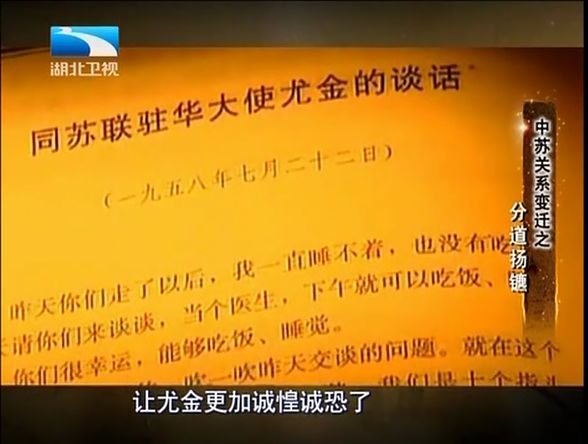 湖北卫视
同苏联驻华大使尤金的谈话
(一九五八年七月二十二日)
昨天你们走了以后，我一直睡不着，也没有吃
请你们来谈谈，当个医生，下午就可以吃饭、
你们很幸运，能够吃饭、睡觉。
吹一吹昨天交谈的问题。就在这个
我们是十个指头
中苏关系变迁之
分道扬镳
让尤金更加诚惶诚恐了